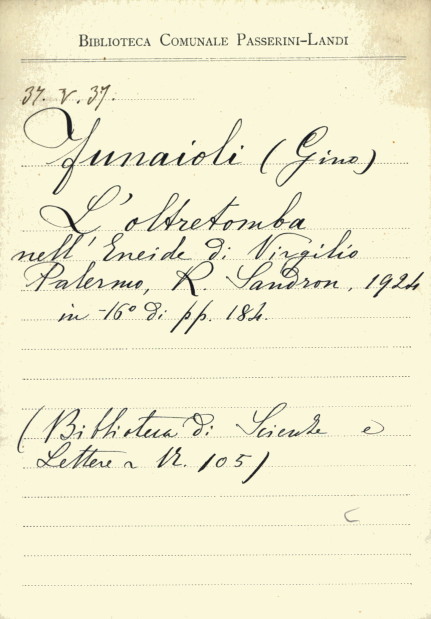 BIBLIOTECA COMUNALE PASSERINI-LANDI
37. V. 37.
Funaioli (Gino)
L'oltretomba
nell'Eneide di Virgilio
Palermo, R. Sandron, 1924
in -16° di pp. 184.
(Biblioteca di Scienze e
Lettere N. 105)